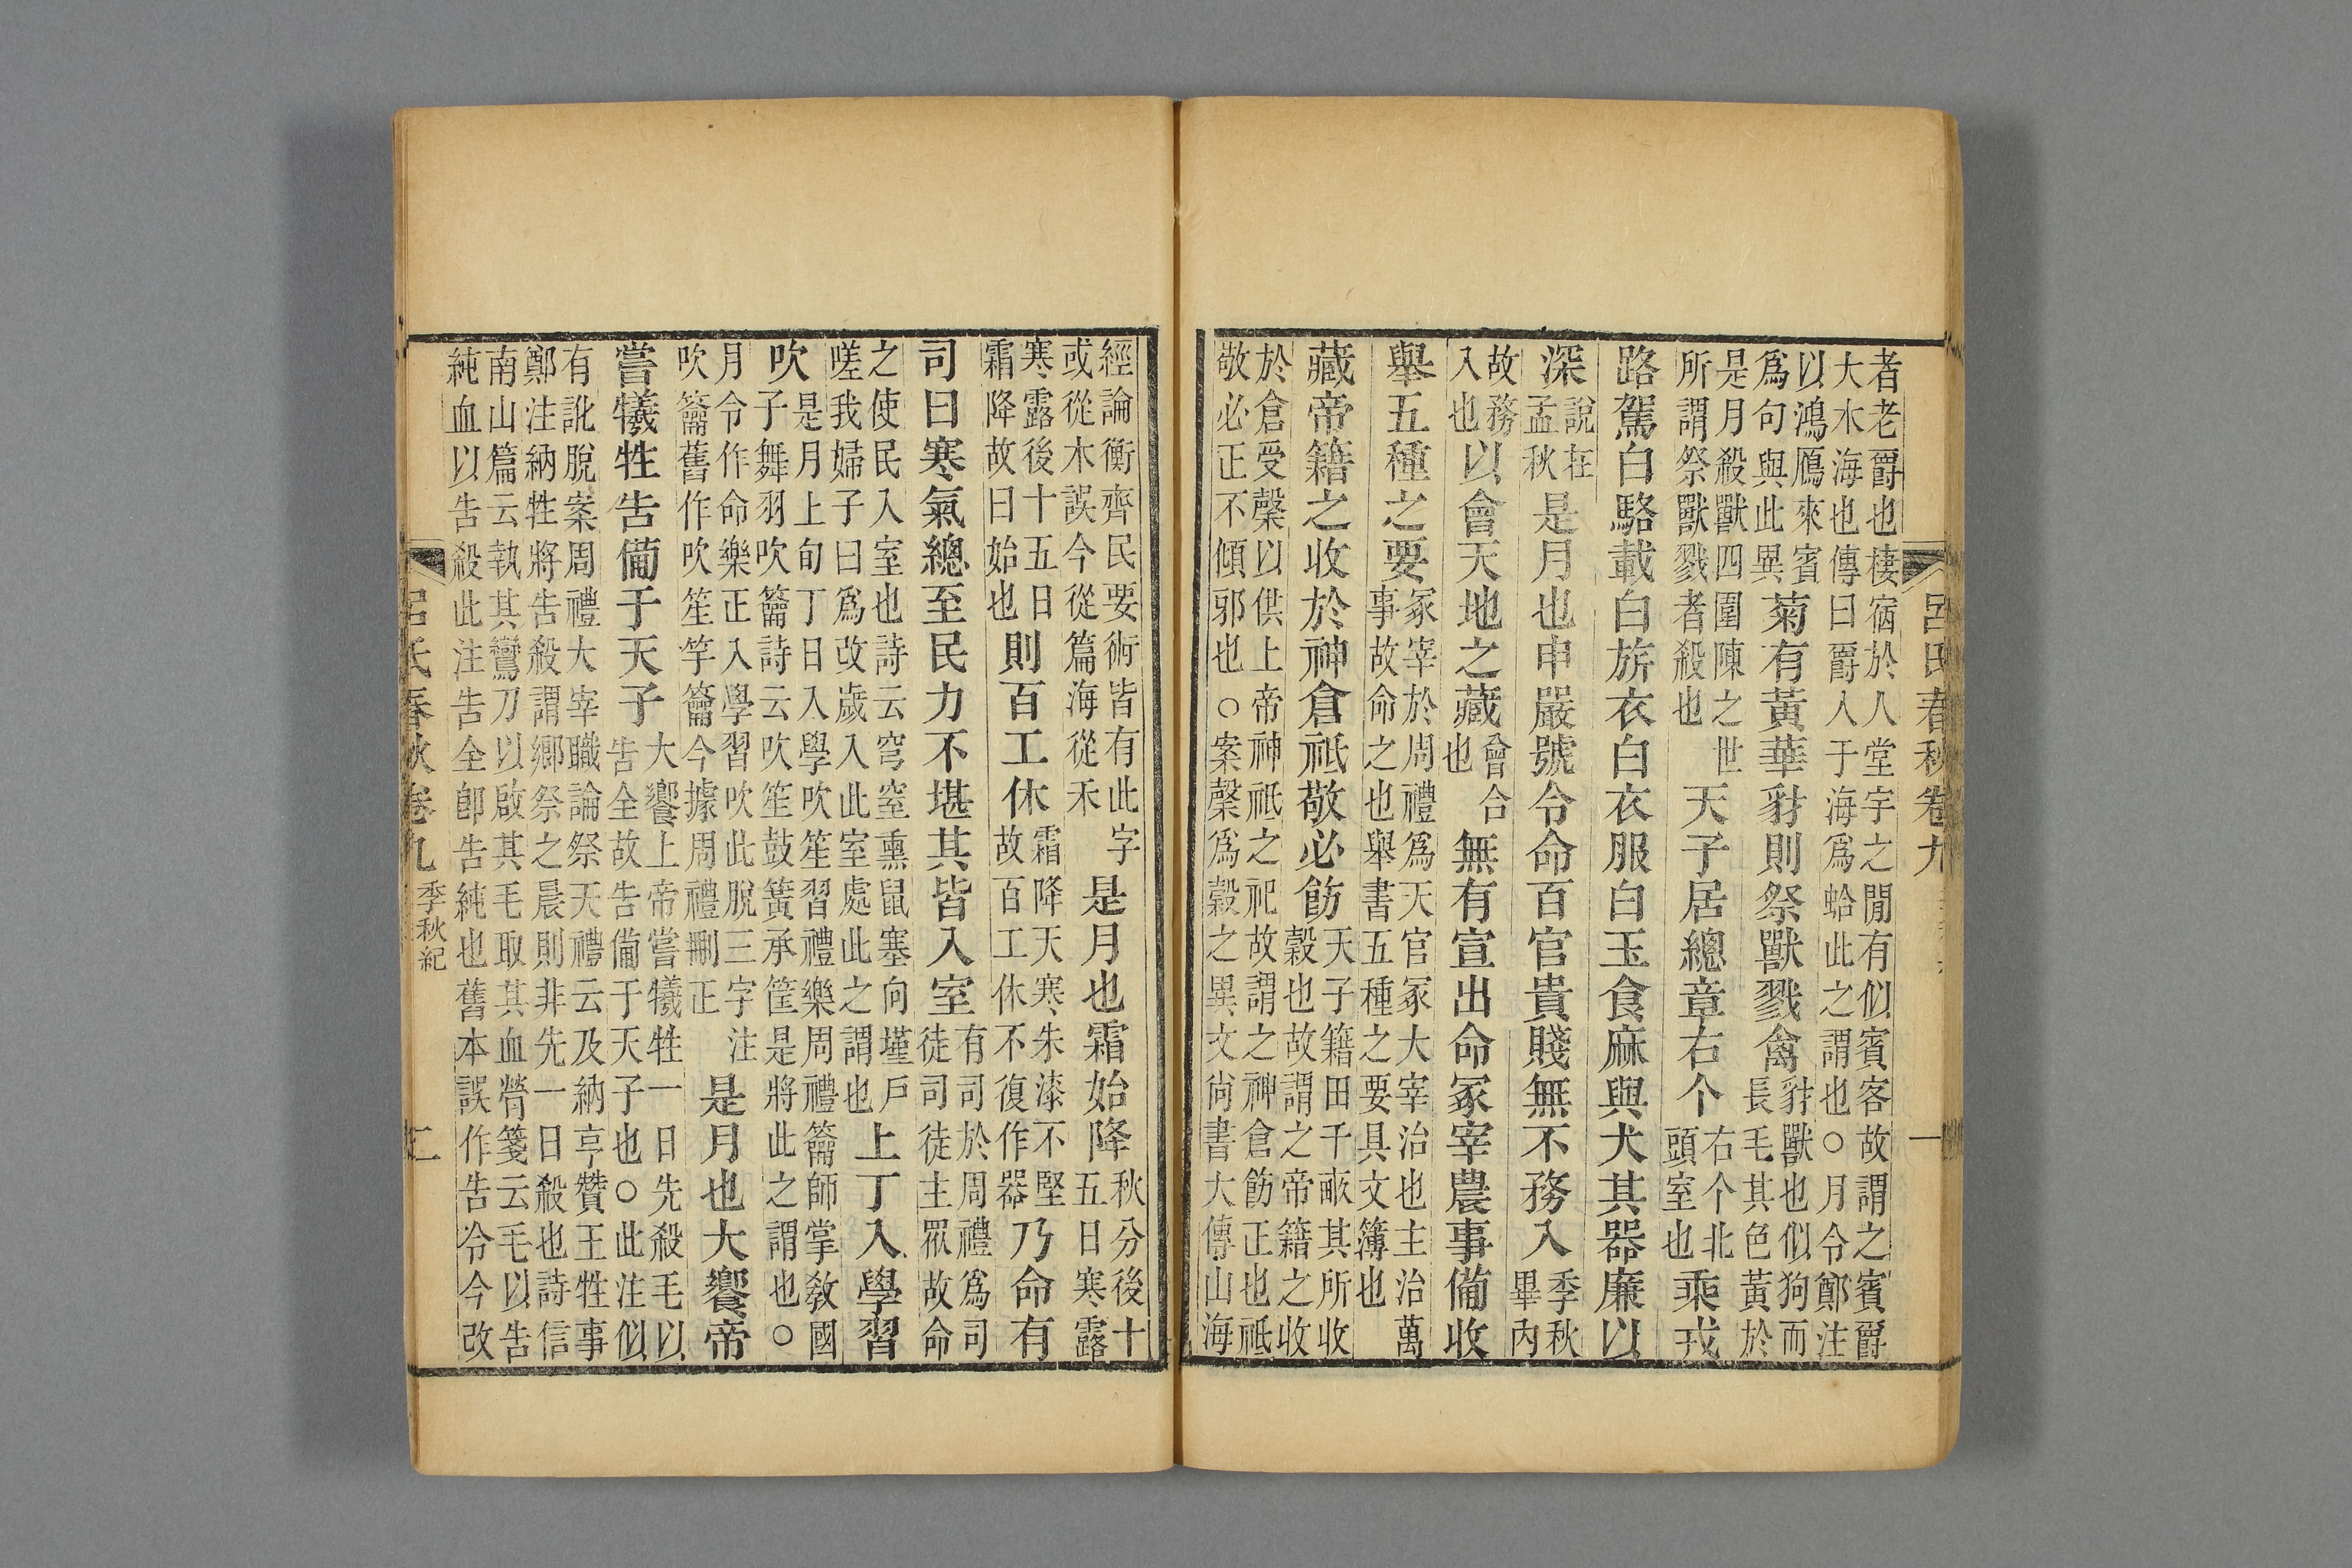 呂氏春秋卷九 一
者老爵也棲宿於人堂宇之閒有似賓客故謂之賓爵大水海也傳曰爵入于海爲蛤此之謂也○月令鄭注
以鴻鴈來賓爲句與此異菊有黃華豺則祭獸戮禽豺獸也似狗而長毛其色黃於
是月殺獸四圍陳之世所謂祭獸戮者殺也天子居總章右个右个北頭室也乘戎
路駕白駱載白旂衣白衣服白玉食麻與犬其器廉以
深說在孟秋是月也申嚴號令命百官貴賤無不務入季秋畢內
故務入也以會天地之藏會合也無有宣出命冢宰農事備收
舉五種之要冢宰於周禮爲天官冢大宰治也主治萬事故命之也舉書五種之要具文簿也
藏帝籍之收於神倉祗敬必飭天子籍田千畝其所收穀也故謂之帝籍之收
於倉受䅽以供上帝神祗之祀故謂之神倉飭正也祗敬必正不傾邪也○案䅽爲穀之異文尚書大傳山海
經論衡齊民要術皆有此字或從木誤今從篇海從禾是月也霜始降秋分後十五日寒露
寒露後十五日霜降故曰始也則百工休霜降天寒朱漆不堅故百工休不復作器乃命有
司曰寒氣總至民力不堪其皆入室有司於周禮爲司徒司徒主眾故命
之使民入室也詩云穹窒熏鼠塞向墐戶嗟我婦子曰爲改歲入此室處此之謂也上丁入學習
吹是月上旬丁日入學吹笙習禮樂周禮籥師掌敎國子舞羽吹籥詩云吹笙鼓簧承筐是將此之謂也○
月令作命樂正入學習吹此脫三字注吹籥舊作吹笙竽籥今據周禮刪正是月也大饗帝
嘗犧牲告備于天子大饗上帝嘗犧牲一日先殺毛以告全故告備于天子也○此注似
有訛脫案周禮大宰職論祭天禮云及納亨贊王牲事鄭注納牲將告殺謂鄉祭之晨則非先一日殺也詩信
南山篇云執其鸞刀以啟其毛取其血膋箋云毛以告純血以告殺此注告全卽告純也舊本誤作告令今改
呂氏春秋卷九 季秋紀 二